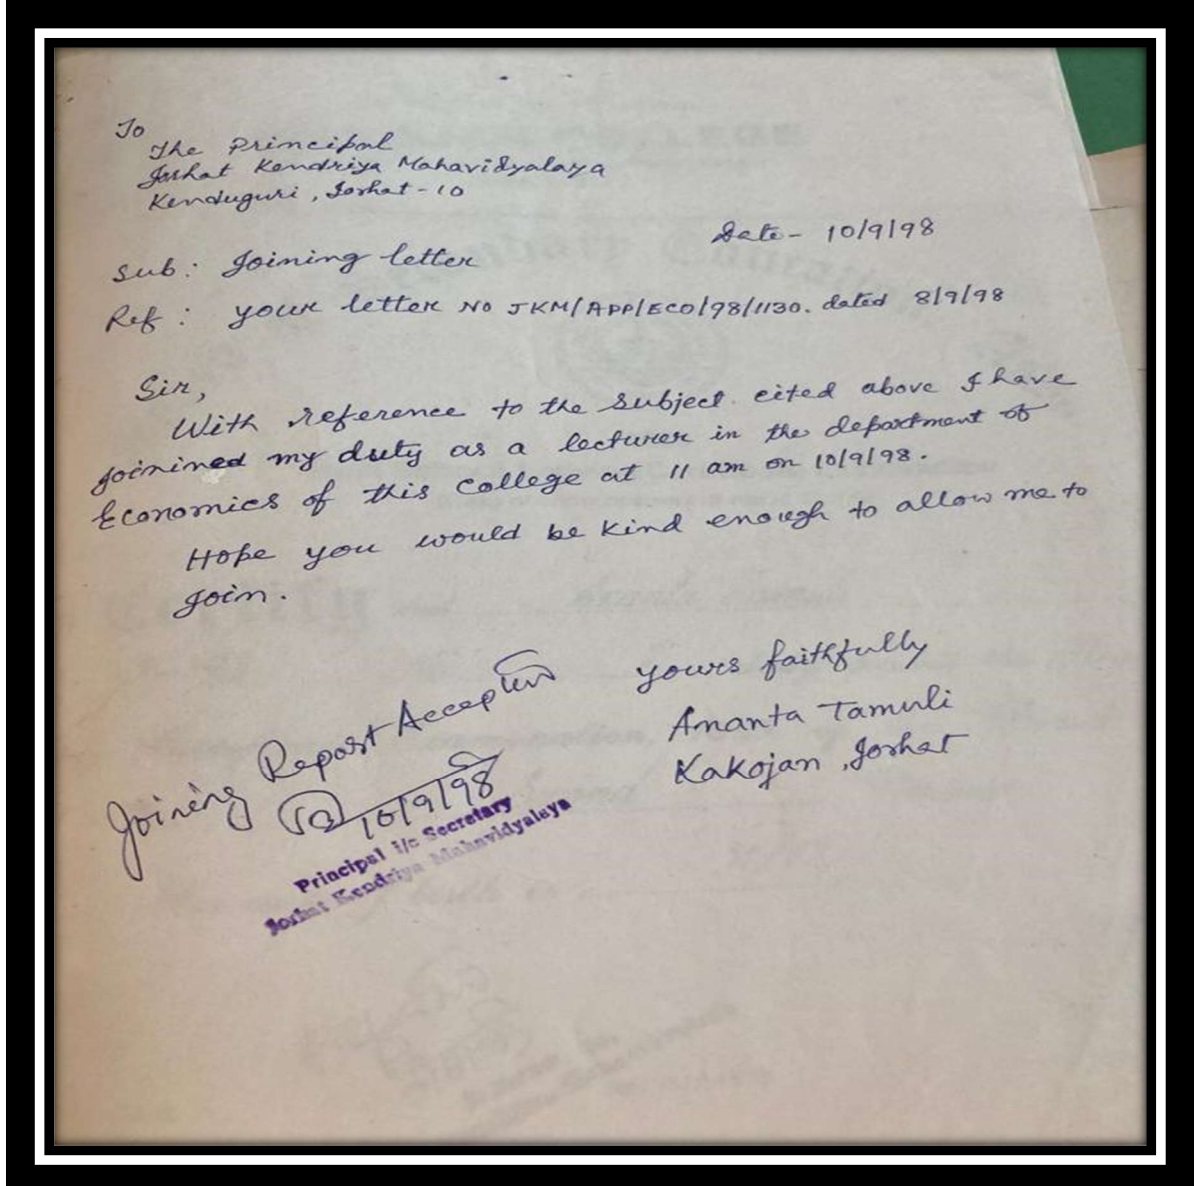 To
The Principal
Jorhat Kendriya Mahavidyalaya
Kenduguri, Jorhat - 10
Date - 10/9/98
Sub: Joining letter
Ref: your letter No JKM/APP/ECO/98/1130. dated 8/9/98
Sir,
With reference to the subject cited above I have
joinined my duty as a lecturer in the department of
Economics of this college at 11 am on 10/9/98.
Hope you would be kind enough to allow me to
join.
yours faithfully
Ananta Tamuli
Kakojan, Jorhat
Joining Report Accepted
10/9/98
Principal i/c Secretary
Jorhat Kendriya Mahavidyalaya